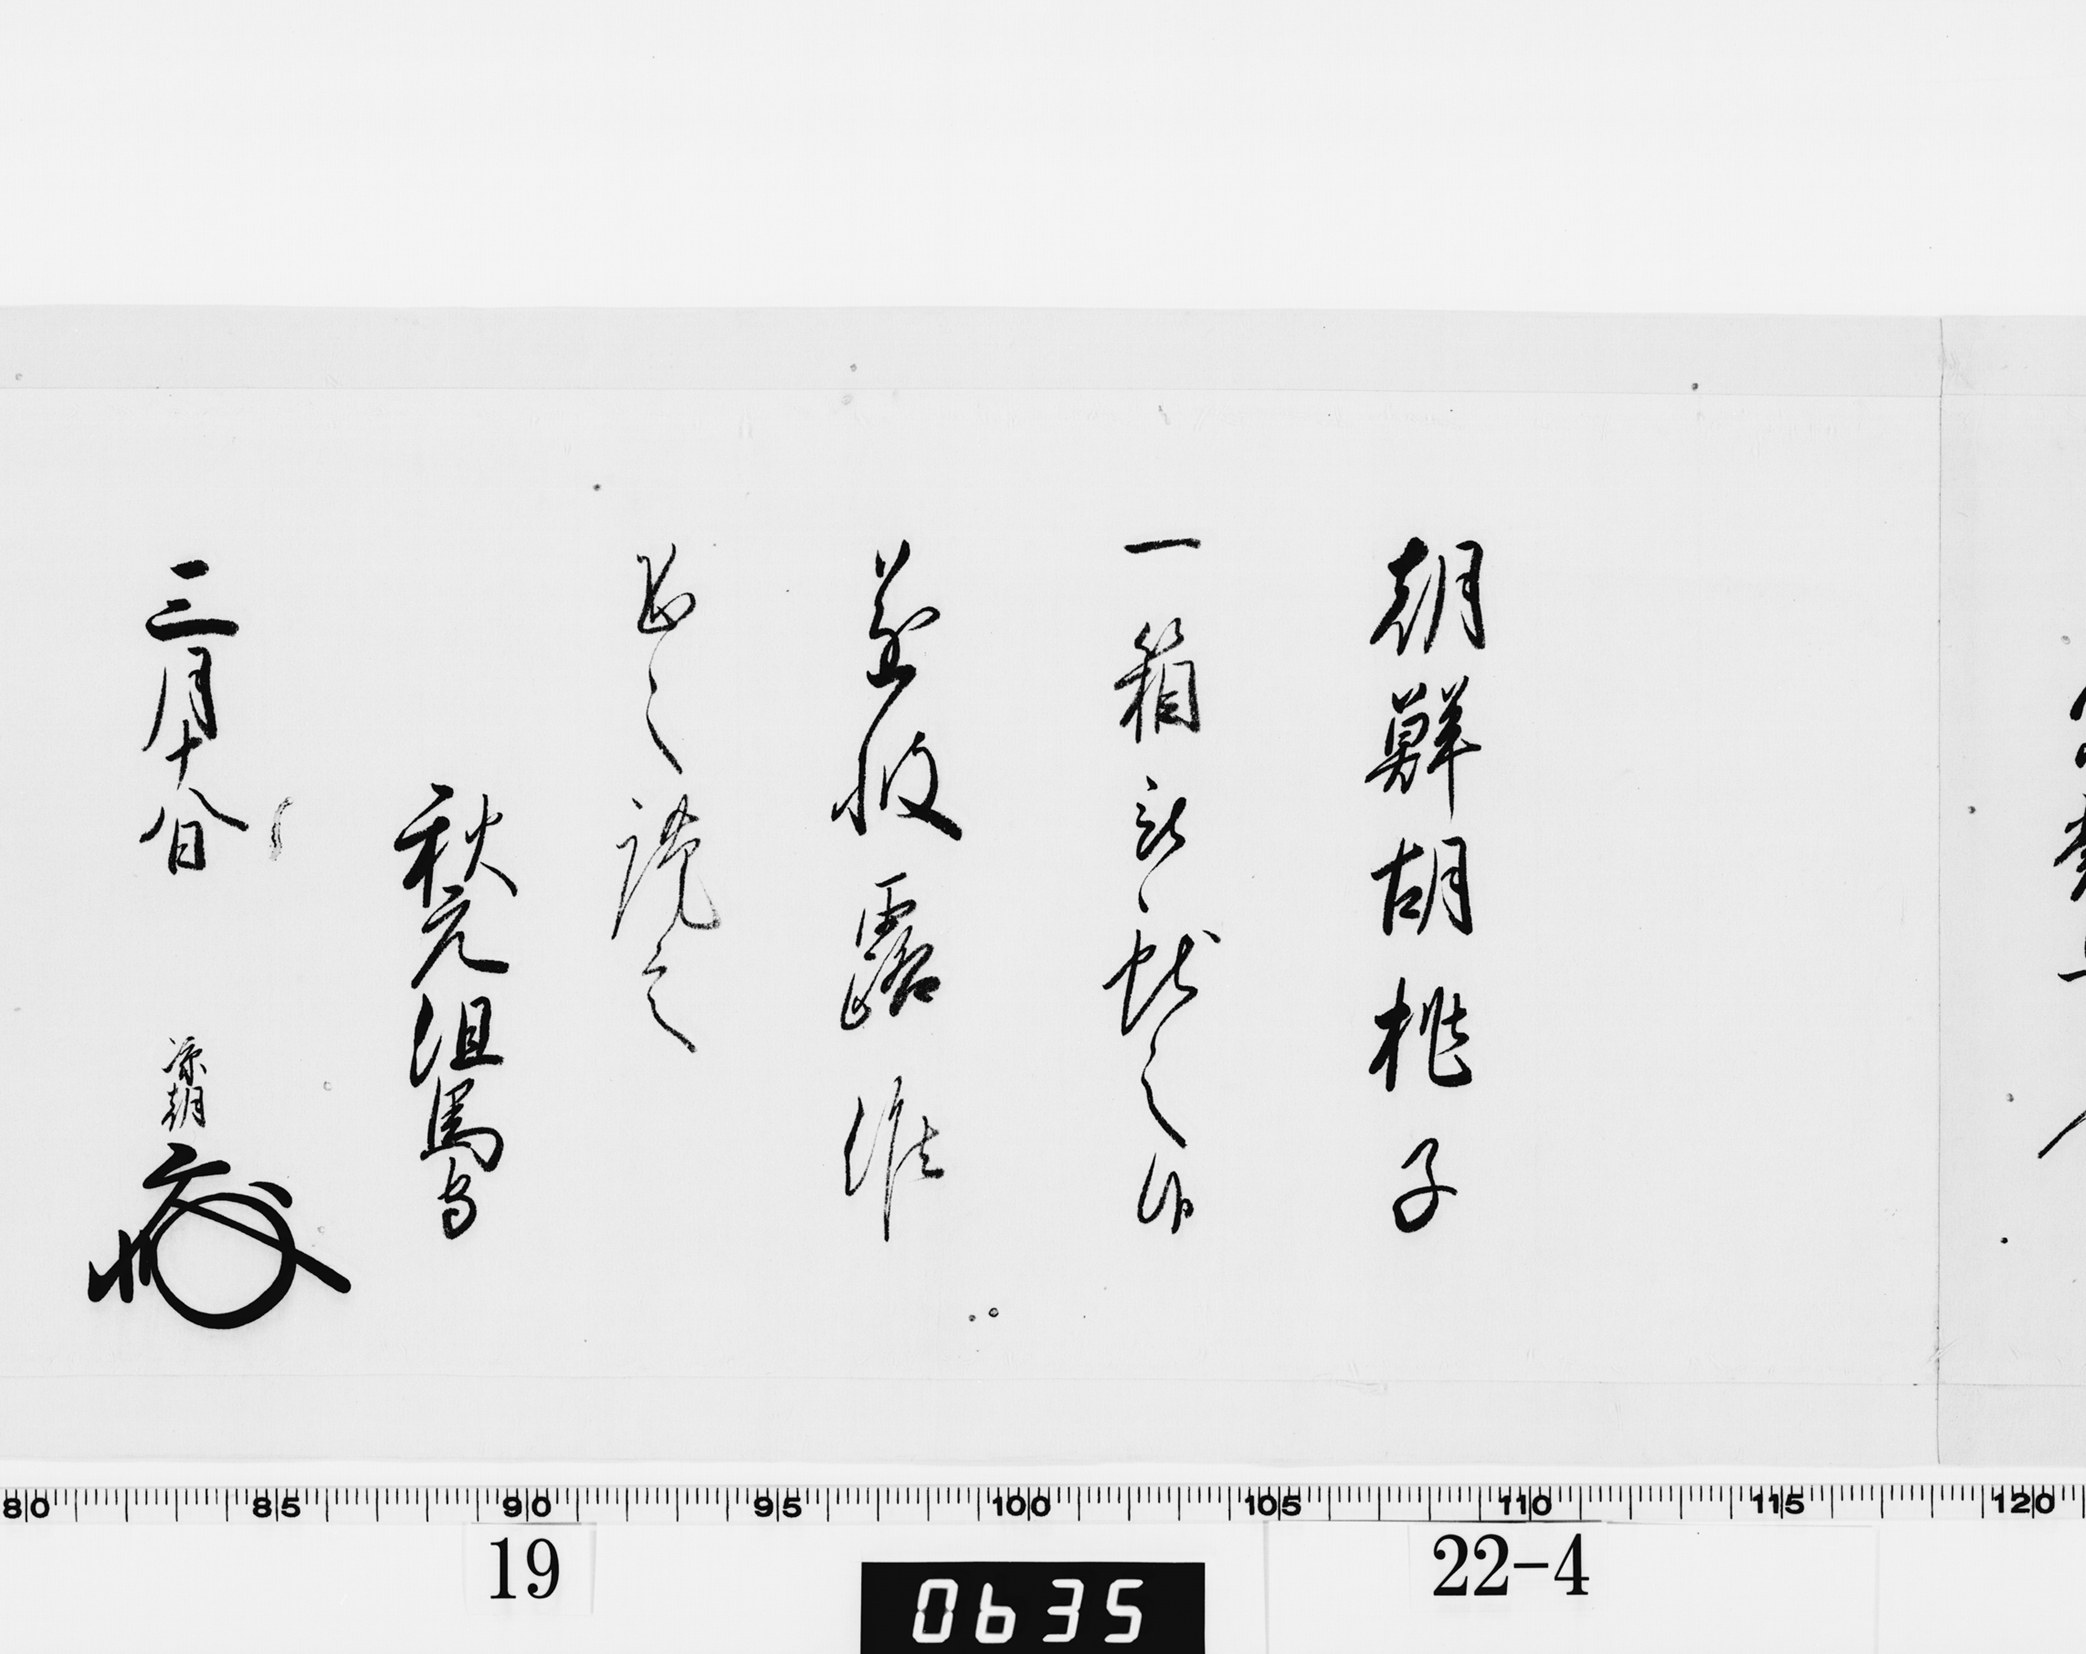 朝鮮胡桃子
一箱被献之候
遂披露候
恐々謹言
秋元但馬守
三月十八日
凉朝
80 85 90 95 100 105 110 115 120
19
0635
22-4